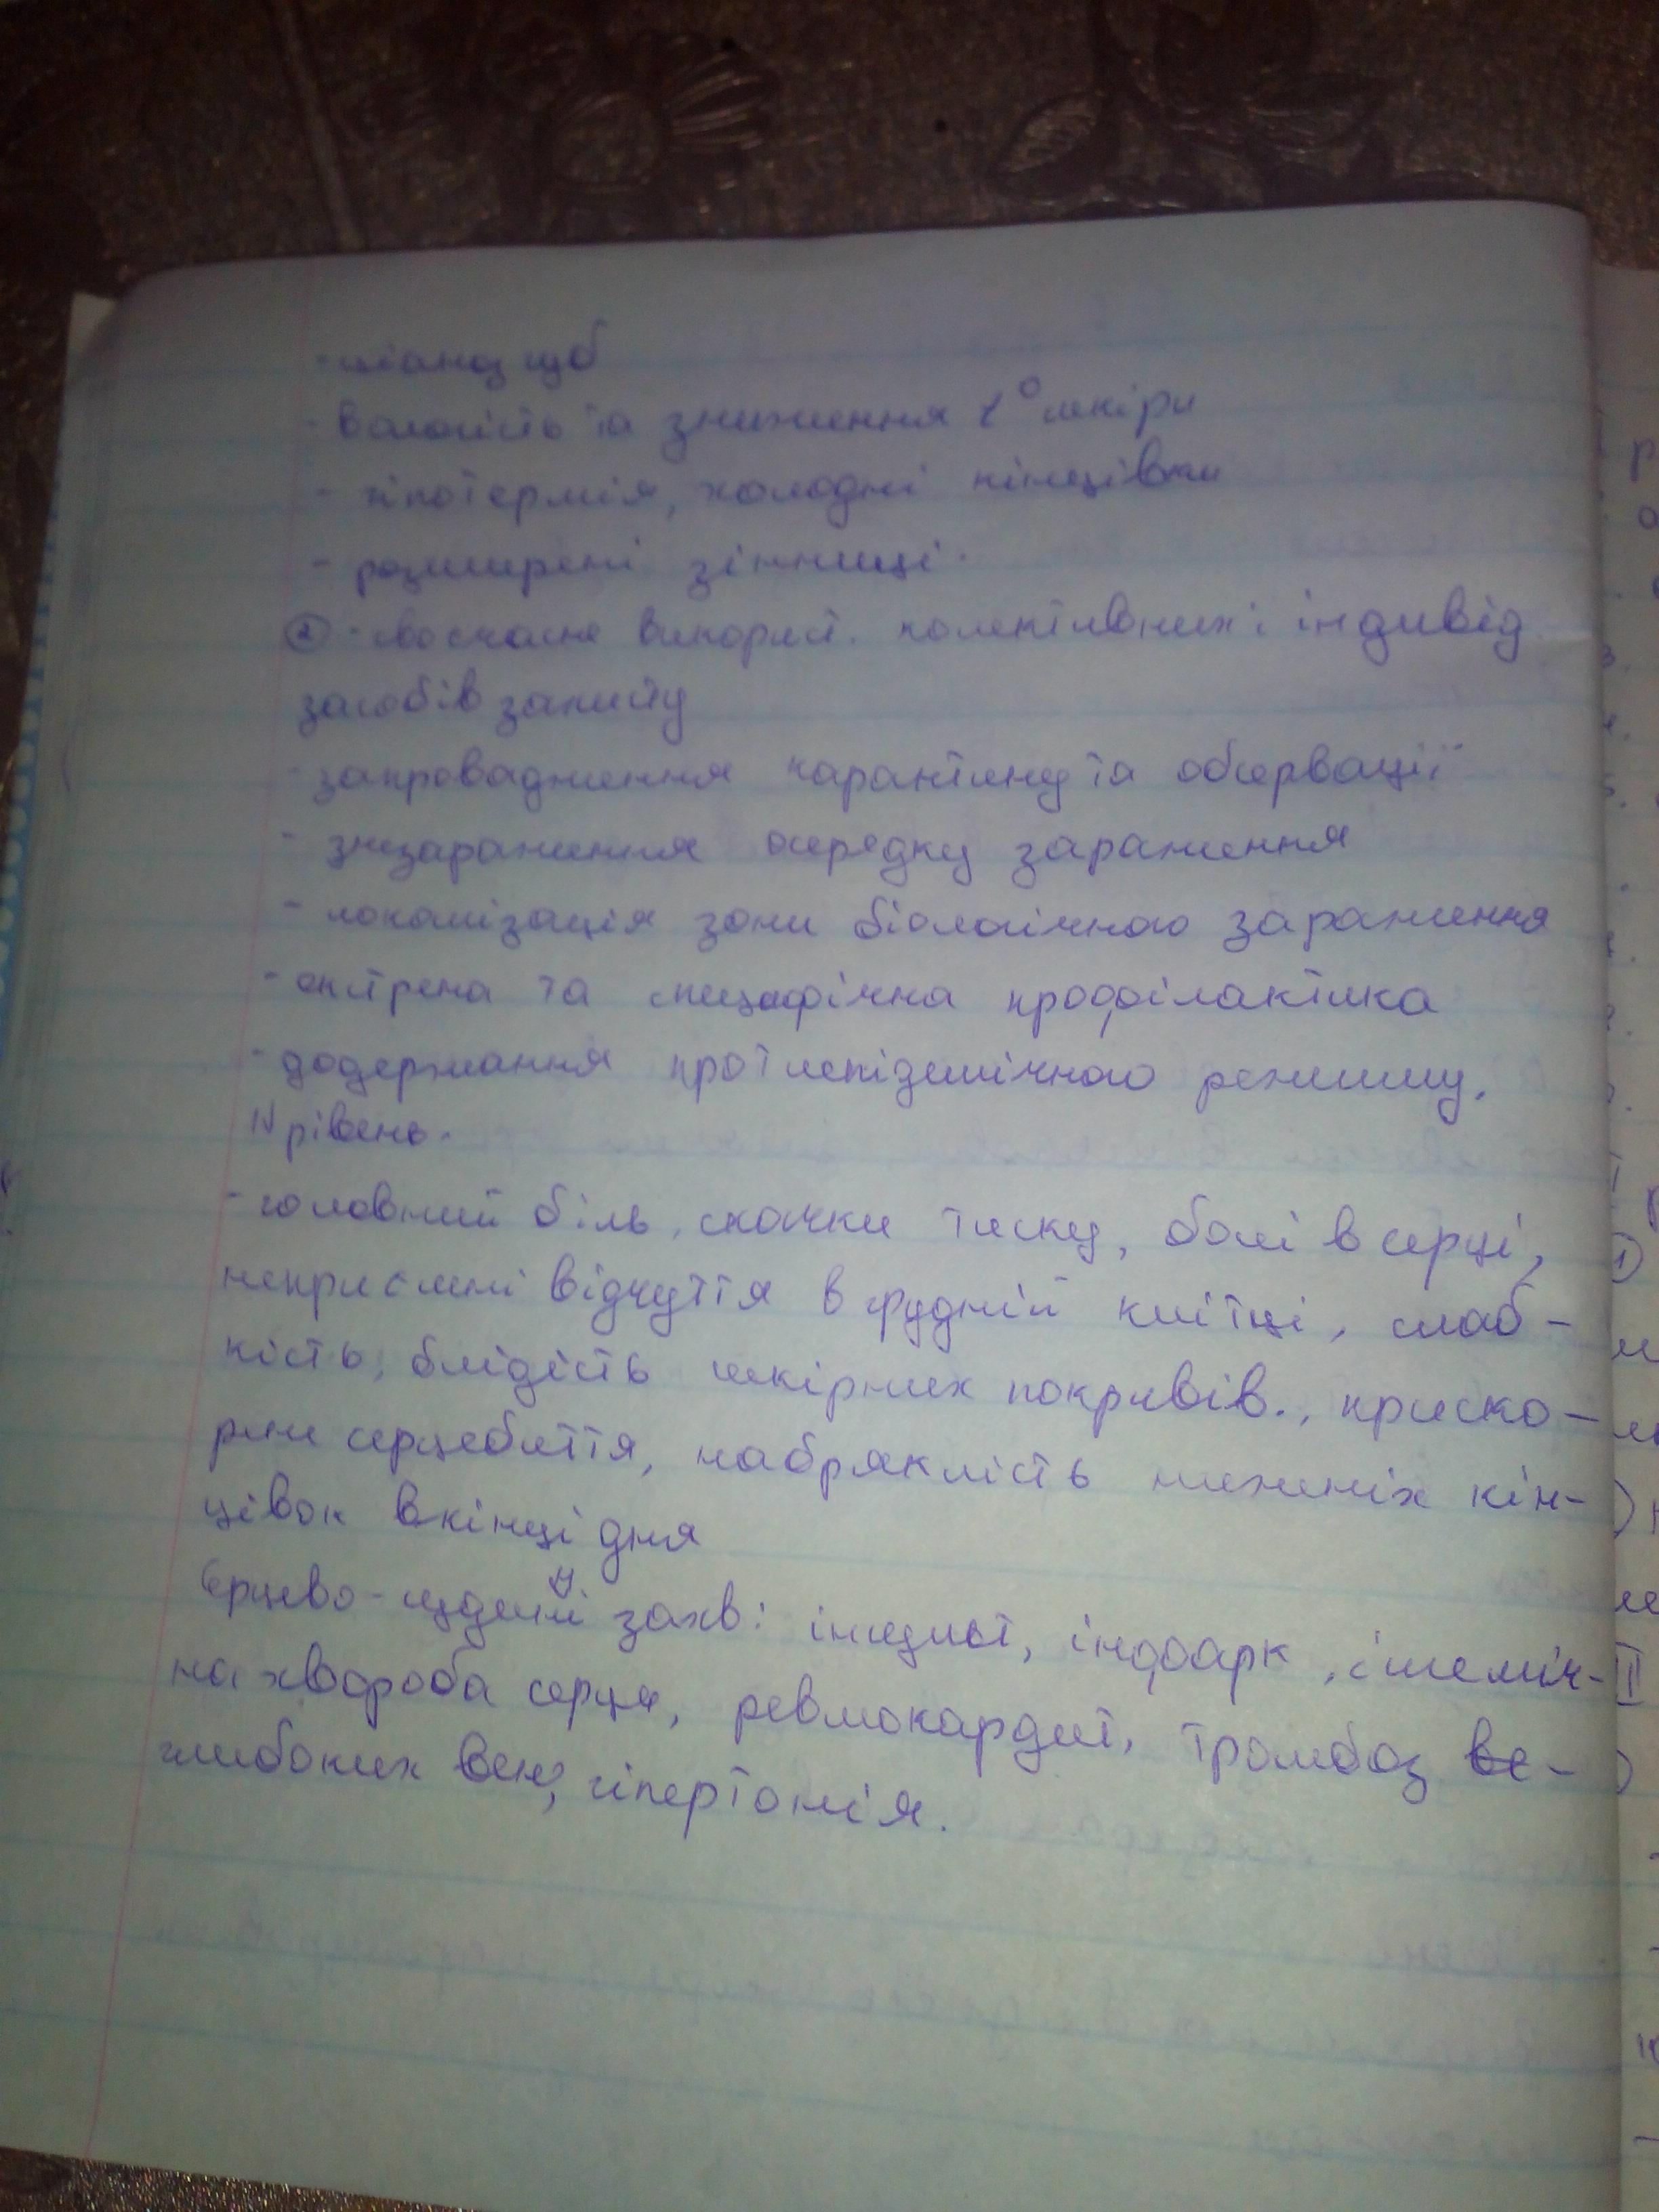 - ціаноз губ
- вологість та зниження t° шкіри
- гіпотермія, холодні кінцівки
- розширені зіниці.
② - своєчасне використ. колективних і індивід.
засобів захисту
- запровадження карантину та обсервації
- знезараження осередку зараження
- локалізація зони біологічного зараження
- екстрена та специфічна профілактика
- додержання протиепідемічного режиму.
IV рівень.
- головний біль, скачки тиску, болі в серці,
неприємні відчуття в грудній клітці, слаб-
кість, блідість шкірних покривів., приско-
рене серцебиття, набряклість нижніх кін-
цівок вкінці дня
Серцево-судинні захв: інсульт, інфаркт, ішеміч-
на хвороба серця, ревмокардит, тромбоз
глибоких вен, гіпертонія.